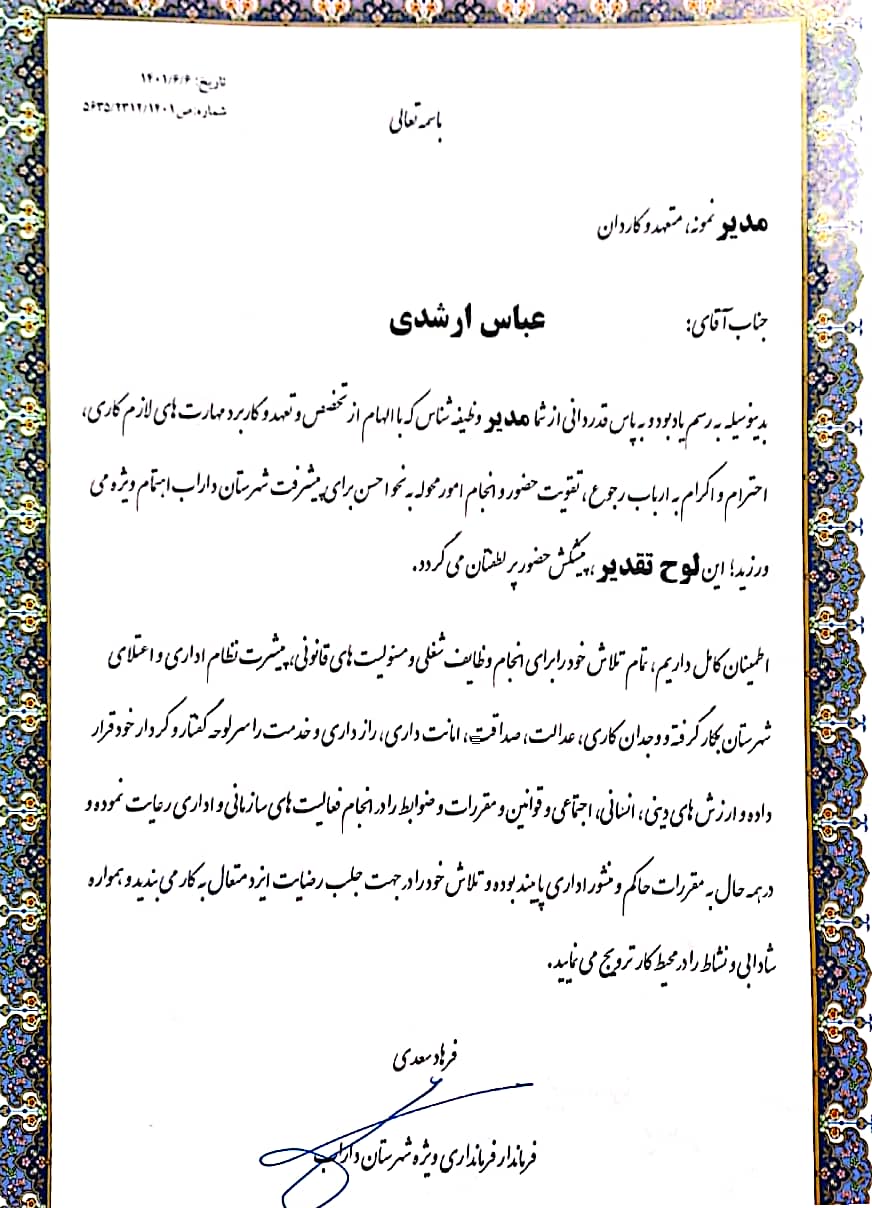 تاریخ: ۱۴۰۱/۶/۶
شماره: ص۵۶۳۵/۲۳۱۲/۱۴۰۱
باسمه تعالی
مدیر نمونه، متعهد و کاردان
جناب آقای: عباس ارشدی
بدینوسیله به رسم یادبود و به پاس قدردانی از شما مدیر وظیفه شناس که با الهام از تخصص و تعهد و کاربرد مهارت های لازم کاری،
احترام و اکرام به ارباب رجوع، تقویت حضور و انجام امور محوله به نحو احسن برای پیشرفت شهرستان داراب اهتمام ویژه می
ورزید؛ این لوح تقدیر، پیشکش حضور پر لطفتان می گردد.
اطمینان کامل داریم، تمام تلاش خود را برای انجام وظایف شغلی و مسئولیت های قانونی، پیشرت نظام اداری و اعتلای
شهرستان بکار گرفته و وجدان کاری، عدالت، صداقت، امانت داری، رازداری و خدمت را سرلوحه گفتار و کردار خود قرار
داده و ارزش های دینی، انسانی، اجتماعی و قوانین و مقررات و ضوابط را در انجام فعالیت های سازمانی و اداری رعایت نموده و
در همه حال به مقررات حاکم و منشور اداری پایبند بوده و تلاش خود را در جهت جلب رضایت ایزد متعال به کار می بندید و همواره
شادابی و نشاط را در محیط کار ترویج می نمایید.
فرهاد سعدی
فرماندار فرمانداری ویژه شهرستان داراب